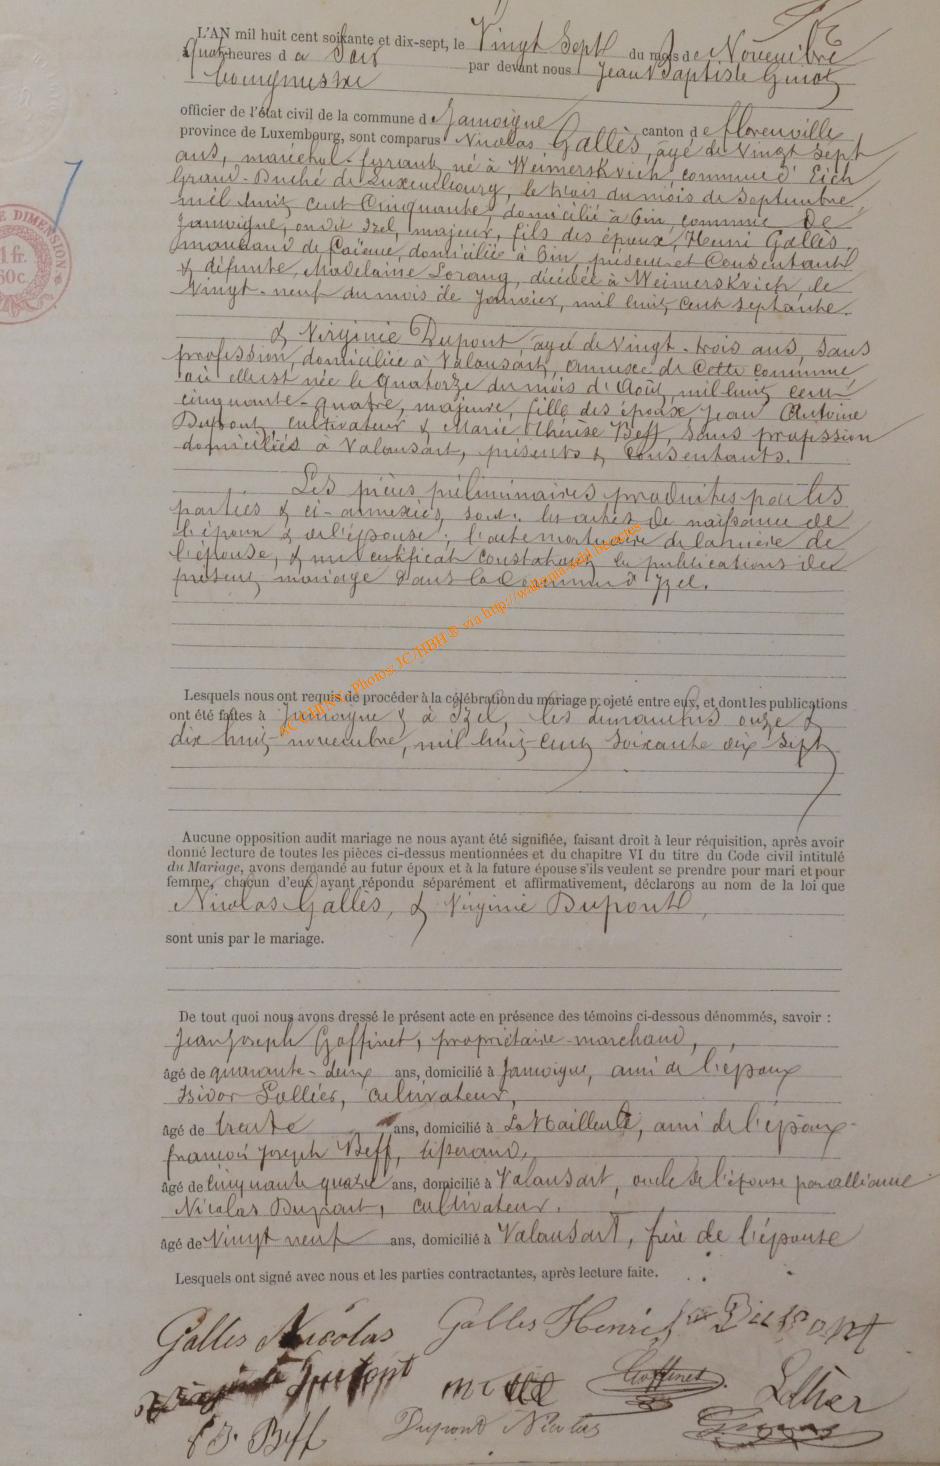 L'AN mil huit cent soixante et dix-sept, le Vingt Sept du mois de Novembre
à quatre heures d u Soir par devant nous Jean Baptiste Guiot
bourgmestre
officier de l'état civil de la commune de Jamoigne canton de florenville
province de Luxembourg, sont comparus Nicolas Gallès, âgé de Vingt Sept
ans, maréchal-ferrant, né à Weimerskirch, commune d'Eich
Grand-Duché de Luxembourg, le trois du mois de Septembre,
mil huit cent Cinquante, domicilié à Pin, commune de
Jamoigne, Izel, majeur, fils des époux Henri Gallès,
marchand de domicilié à Pin, présent et Consentant
& défunte, Madelaine Lorang, décédée à Weimerskirch le
Vingt-neuf du mois de Janvier, mil huit cent septante.
& Virginie Dupont âgée de vingt-trois ans, Sans
profession, domiciliée à Valansart, annexe de Cette commune
où elle est née le quatorze du mois d'Août, mil huit cent
cinquante-quatre, majeure, fille des époux Jean Antoine
Dupont, cultivateur & Marie Thérèse Beff, Sans profession
domiciliés à Valansart, présents & Consentants.
Les pièces préliminaires produites par les
parties & ci-annexées, sont: les actes de naissance de
l'époux & de l'épouse; l'acte mortuaire de la mère de
l'épouse, & un certificat constatant les publications du
présent mariage dans la Commune d'Izel.
ACCHENY - Photos: JC/HBH ® via http://wikirma-izel.be/actes
Lesquels nous ont requis de procéder à la célébration du mariage projeté entre eux, et dont les publications
ont été faites à Jamoigne & à Izel, les dimanches onze &
dix huit novembre, mil huit-cent soixante dix-sept
Aucune opposition audit mariage ne nous ayant été signifiée, faisant droit à leur réquisition, après avoir
donné lecture de toutes les pièces ci-dessus mentionnées et du chapitre VI du titre du Code civil intitulé
du Mariage, avons demandé au futur époux et à la future épouse s'ils veulent se prendre pour mari et pour
femme, chacun d'eux ayant répondu séparément et affirmativement, déclarons au nom de la loi que
Nicolas Gallès, & Virginie Dupont,
sont unis par le mariage.
De tout quoi nous avons dressé le présent acte en présence des témoins ci-dessous dénommés, savoir :
Jean Joseph Goffinet, propriétaire-marchand,
âgé de quarante-deux ans, domicilié à Jamoigne, ami de l'époux
Isidor Lallier, cultivateur,
âgé de trente ans, domicilié à , ami de l'époux
françois Joseph Beff, tisserand,
âgé de Cinquante quatre ans, domicilié à Valansart, oncle de l'épouse par alliance
Nicolas Dupont, cultivateur.
âgé de Vingt neuf ans, domicilié à Valansart, frère de l'épouse
Lesquels ont signé avec nous et les parties contractantes, après lecture faite.
Galles Nicolas Galles Henri Dupont
Virginie Dupont Goffinet Lallier
f J. Beff Dupont Nicolas
E DIMENSION
1 fr.
60c.